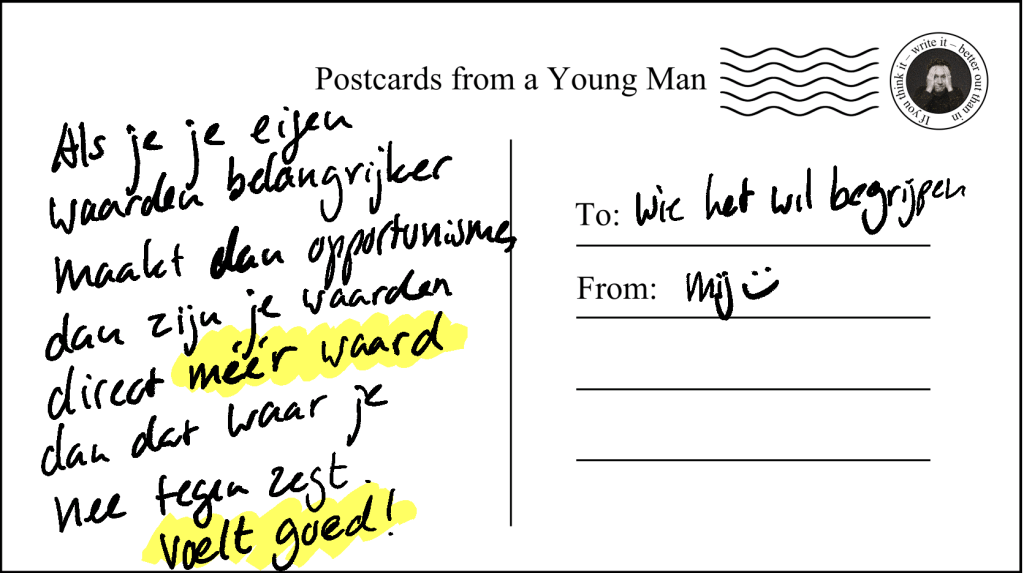 Postcards from a Young Man
If you think it – write it – better out than in
Als je je eigen
waarden belangrijker
maakt dan opportunisme,
dan zijn je waarden
direct méér waard
dan dat waar je
nee tegen zegt.
Voelt goed!
To: wie het wil begrijpen
From: mij